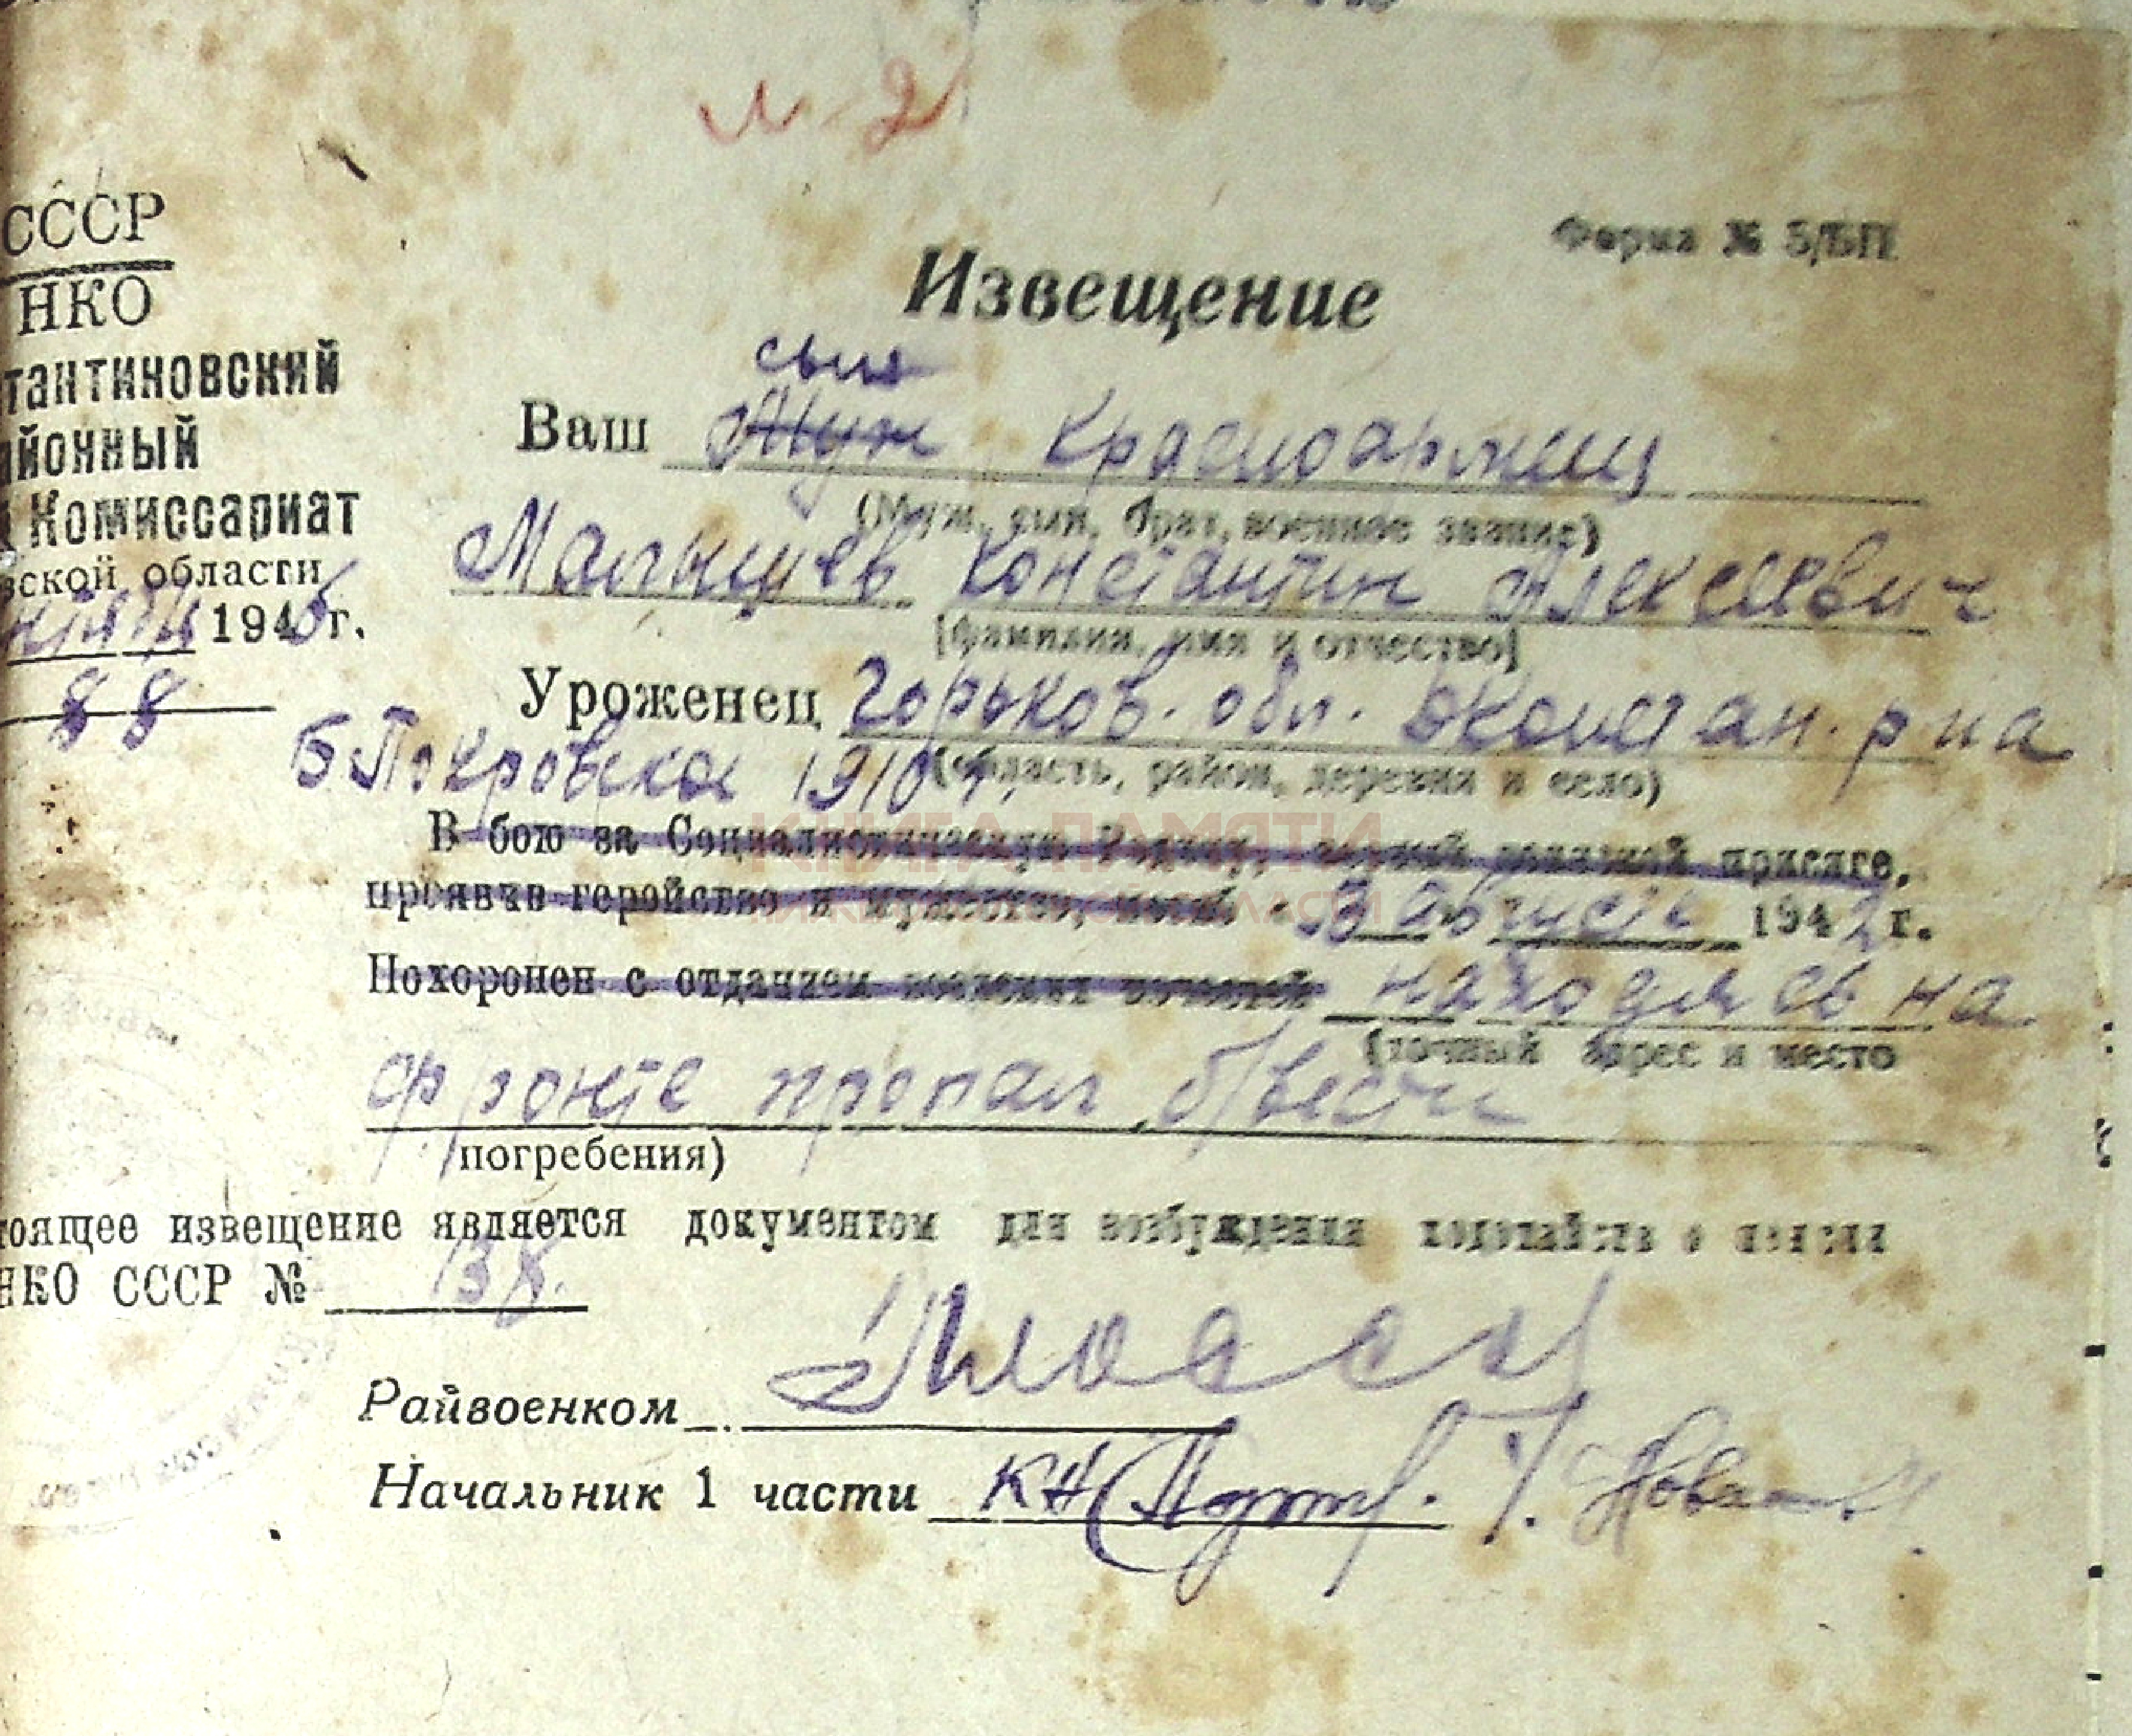 л-2
СССР
НКО
тантиновский
айонный
Комиссариат
вской области
1946 г.
88
Форма № 5/БП
Извещение
сын
Ваш Муж Красноармеец
(Муж, сын, брат, военное звание)
Малышев Константин Алексеевич
(фамилия, имя и отчество)
Уроженец Горьков. обл. Дконстан. р-на
Б. Покровское 1910 г.
(область, район, деревня и село)
КНИГА ПАМЯТИ
В бою за Социалистическую Родину, верный воинской присяге,
проявив геройство и мужество, погиб в августе 1942 г.
Похоронен с отданием воинских почестей находясь на
(точный адрес и место
фронте пропал б/вести
погребения)
тоящее извещение является документом для возбуждения ходатайства о пенсии
НКО СССР №
Райвоенком
Начальник 1 части